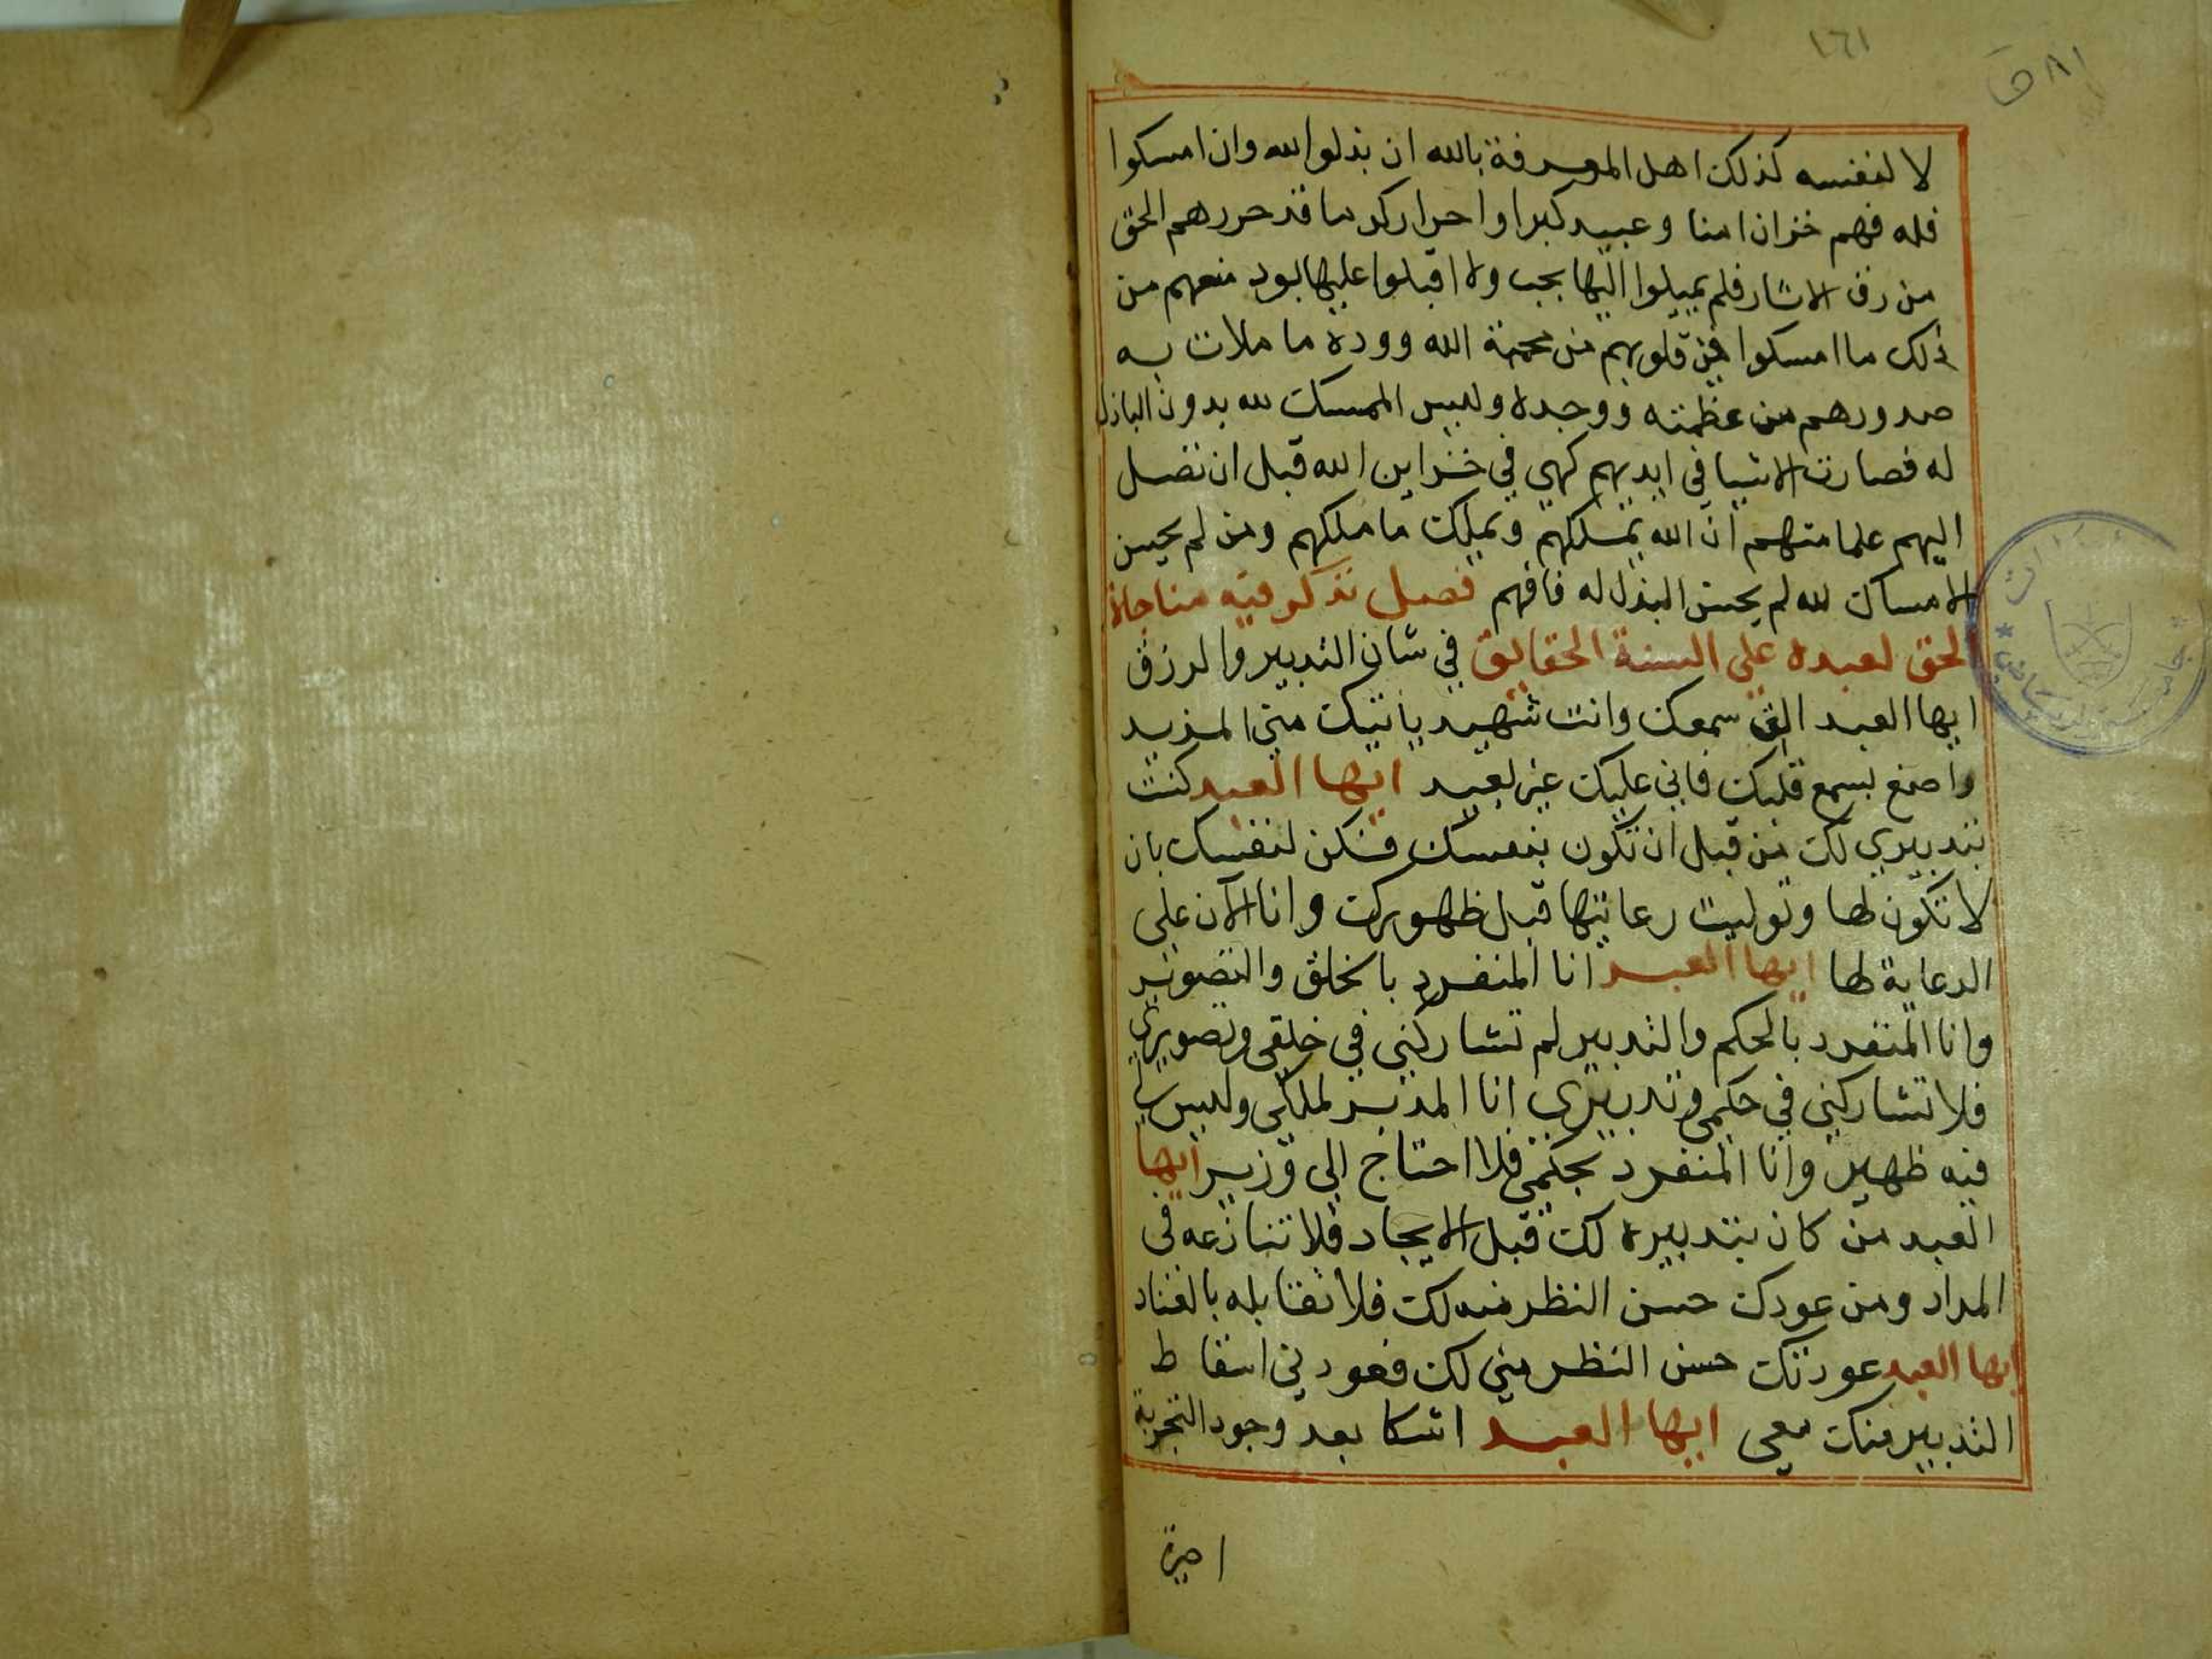 ١٦١
٨١ ق
لا لنفسه كذلك اهل المعرفة بالله ان بذلوا لله وان امسكوا
فله فهم خزان امنا وعبيد كبرا واحرار كرما قد حررهم الحق
من رق الاثار فلم يميلوا اليها بحب ولا اقبلوا عليها بود منعهم من
ذلك ما امسكوا في قلوبهم من محبة الله ووده ما ملات به
صدورهم من عظمته ووجده وليس الممسك لله بدون الباذل
له فصارت الاشيا في ايديهم كهي في خزاين الله قبل ان تصل
اليهم علما منهم ان الله يملكهم ويملك ما ملكهم ومن لم يحسن
الامساك لله لم يحسن البذل له فافهم فصل نذكر فيه مناجاة
الحق لعبده على السنة الحقايق في شان التدبير والرزق
ايها العبد الق سمعك وانت شهيد ياتيك مني المزيد
واصغ بسمع قلبك فاني عليك غير بعيد ايها العبد كنت
بتدبيري لك من قبل ان تكون بنفسك فكن لنفسك بان
لا تكون لها وتوليت رعايتها قبل ظهورك وانا الآن على
الرعاية لها ايها العبد انا المنفرد بالخلق والتصوير
وانا المنفرد بالحكم والتدبير لم تشاركني في خلقي وتصويري
فلا تشاركني في حكمي وتدبيري انا المدبر لملكي وليس لي
فيه ظهير وانا المنفرد بحكمي فلا احتاج الى وزير ايها
العبد من كان بتدبيره لك قبل الايجاد فلا تنازعه في
المراد ومن عودك حسن النظر منه لك فلا تقابله بالعناد
ايها العبد عودتك حسن النظر مني لك فعودني اسقاط
التدبير منك معي ايها العبد اشكا بعد وجود التجربة
احيرة